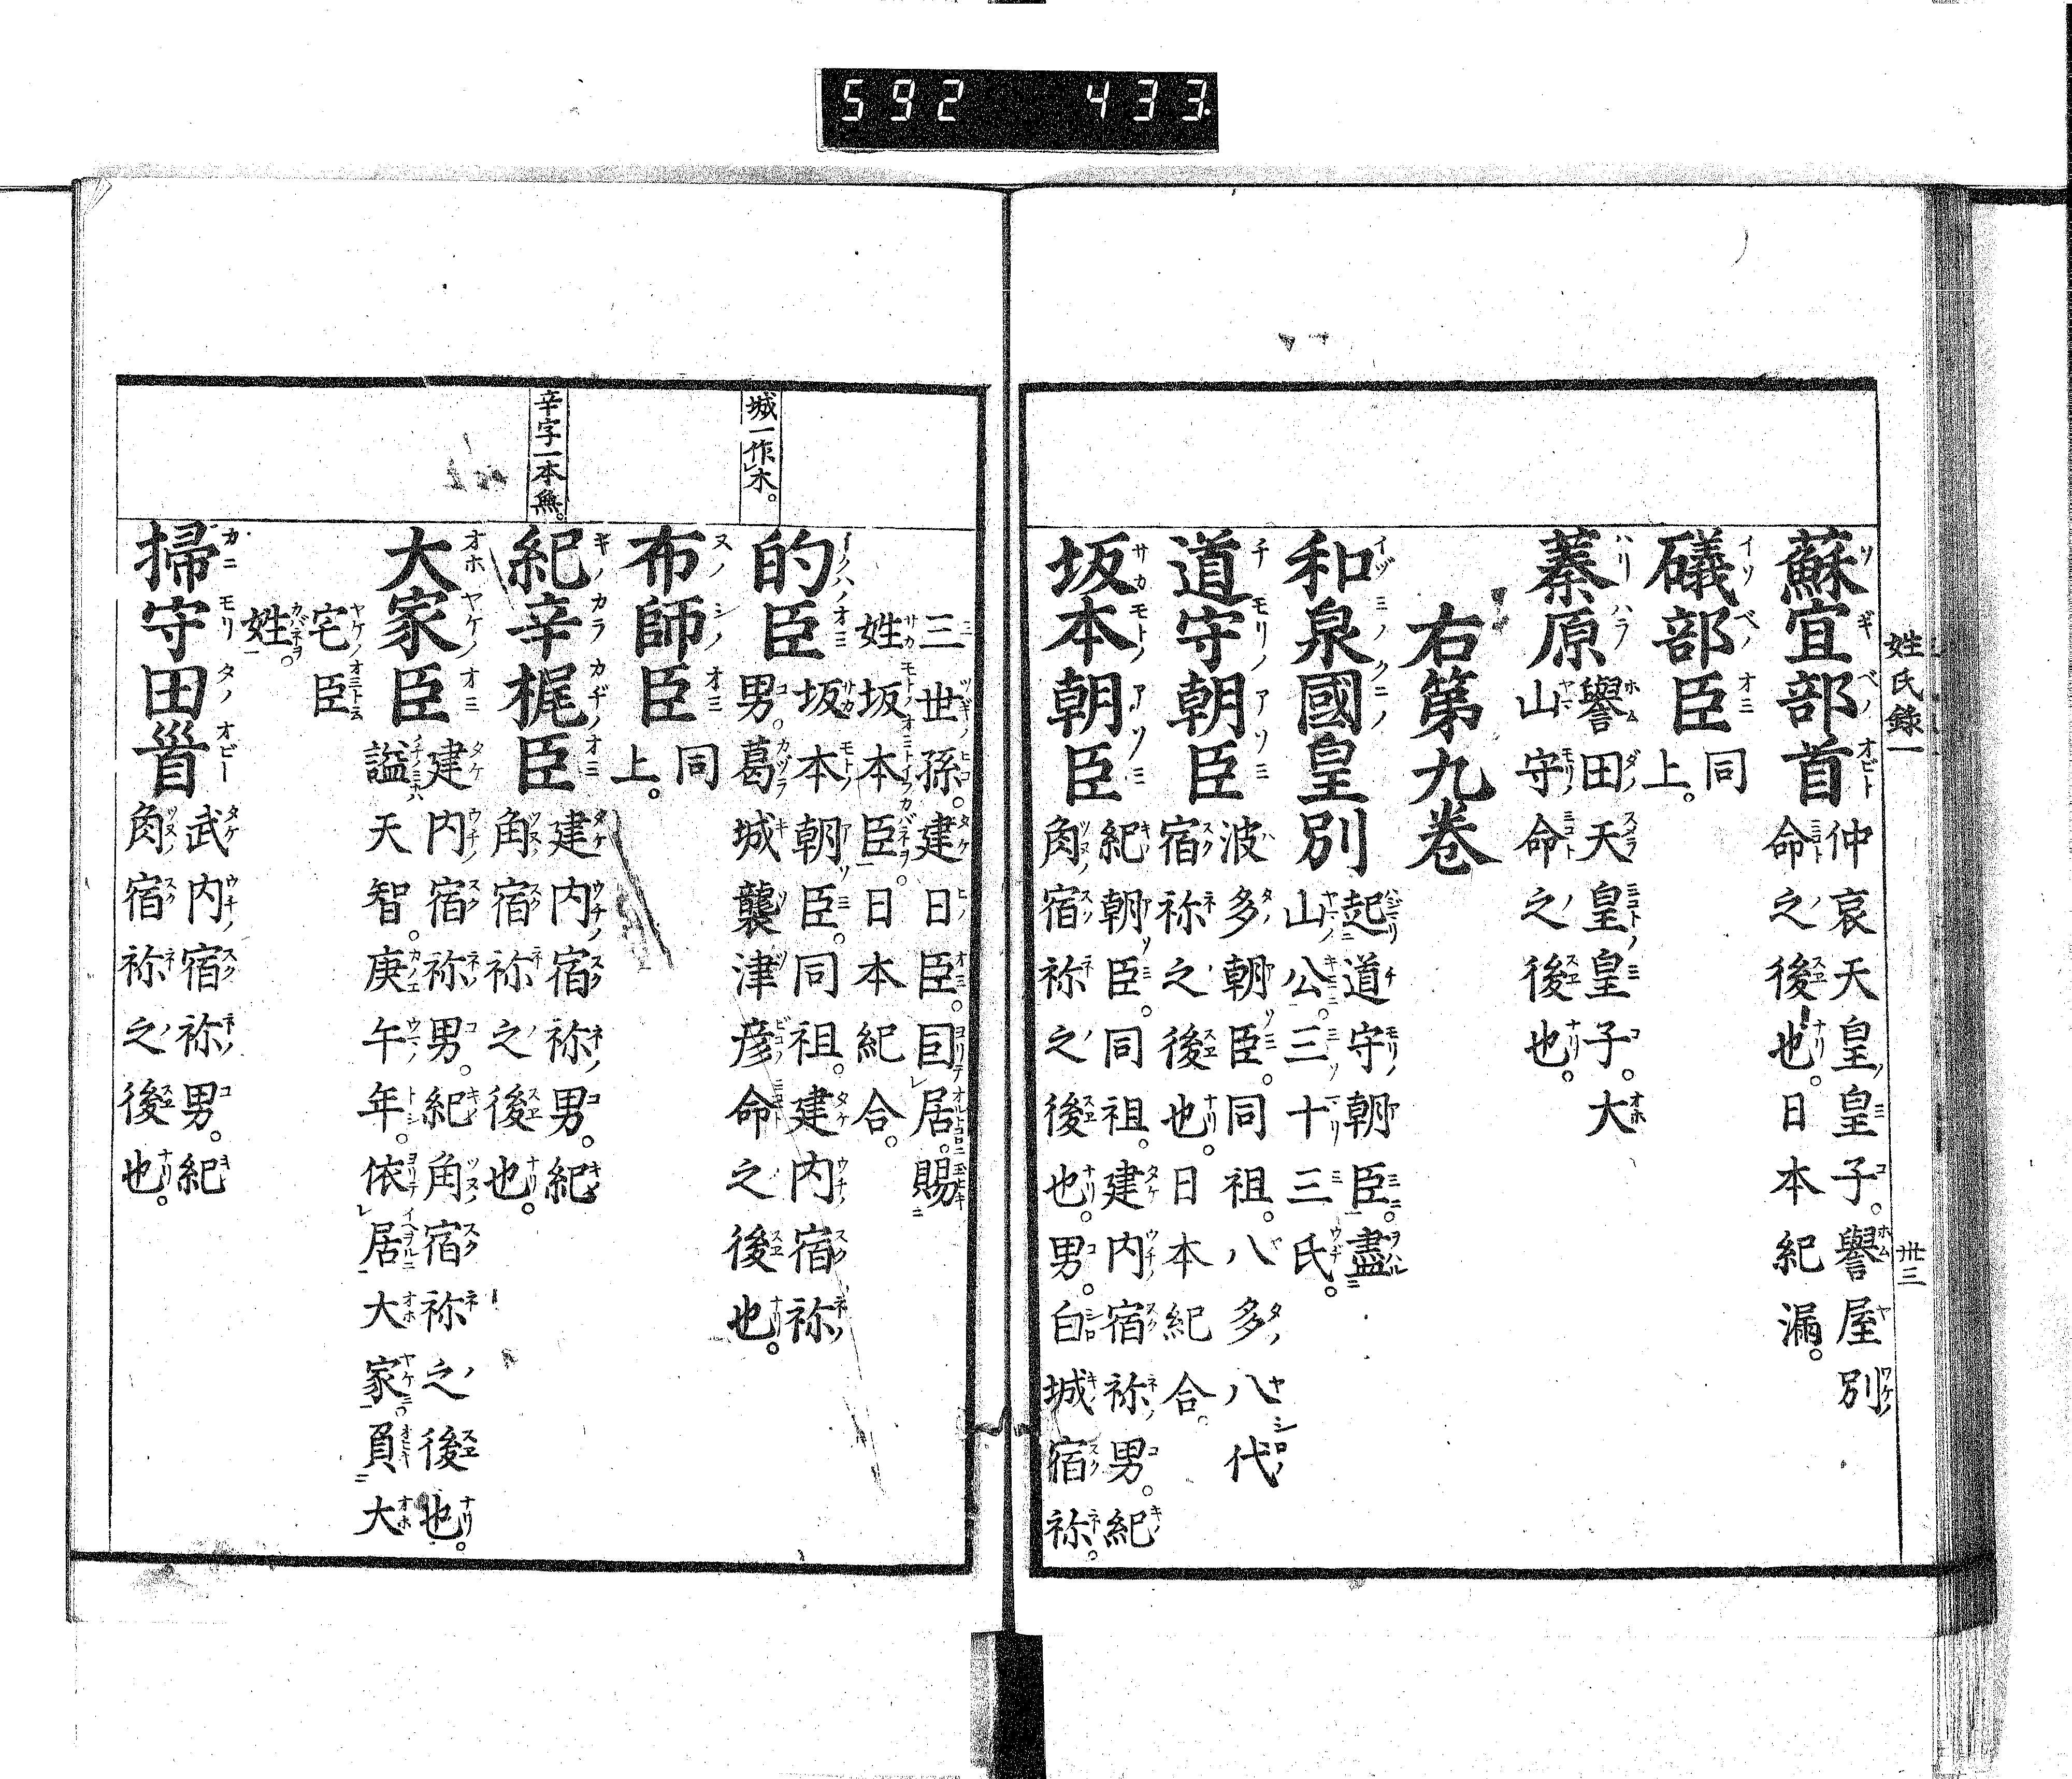 592 433.
姓氏錄一
卅三
蘇宜部首
仲哀天皇皇子。譽屋別
命之後也。日本紀漏。
礒部臣
同
上。
蓁原
譽田天皇皇子。大
山守命之後也。
右第九卷
和泉國皇別
起道守朝臣。盡
山公。三十三氏。
道守朝臣
波多朝臣。同祖。八多八代
宿祢之後也。日本紀合。
坂本朝臣
紀朝臣。同祖。建内宿祢男。紀
角宿祢之後也。男。白城宿祢。
三世孫。建日臣。因居。賜
姓坂本臣。日本紀合。
城一作木。
的臣
坂本朝臣。同祖。建内宿祢
男。葛城襲津彦命之後也。
布師臣
同
上。
辛字一本無。
紀辛梶臣
建内宿祢男。紀
角宿祢之後也。
大家臣
建内宿祢男。紀角宿祢之後也。
謚天智。庚午年。依居大家負大
宅臣
姓。
掃守田首
武内宿祢男。紀
角宿祢之後也。